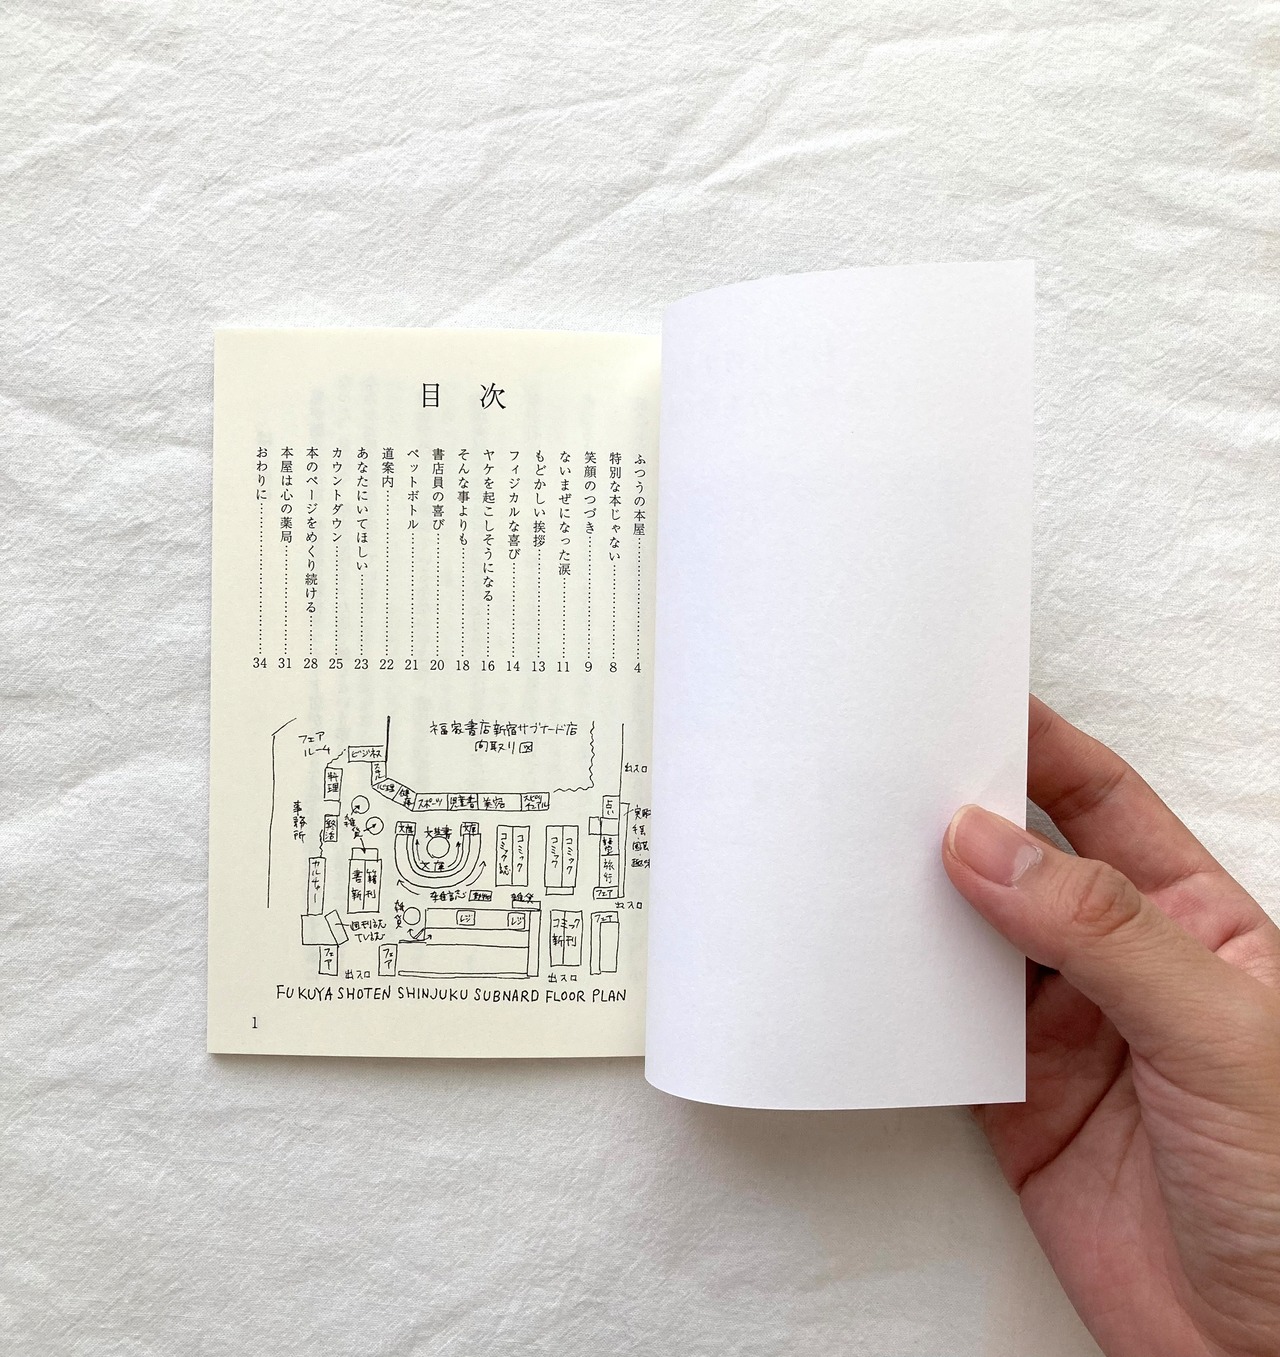 目次
ふつうの本屋……………………4
特別な本じゃない……………………8
笑顔のつづき……………………9
ないまぜになった涙……………………11
もどかしい挨拶……………………13
フィジカルな喜び……………………14
ヤケを起こしそうになる……………………16
そんな事よりも……………………18
書店員の喜び……………………20
ペットボトル……………………21
道案内……………………22
あなたにいてほしい……………………23
カウントダウン……………………25
本のページをめくり続ける……28
本屋は心の薬局……………………31
おわりに……………………34
福家書店新宿サブナード店
間取り図
フェア
ルーム
ビジネス
料理
心理
健康
スポーツ
児童書
美容
出入口
占い
事務所
雑貨
文庫
文芸書
文庫
文庫
コミック誌
コミック
コミック
コミック
旅行
フェア
出入口
カルチャー
書籍
新刊
雑誌
雑貨
レジ
レジ
コミック
新刊
フェア
週刊誌
TV誌
フェア
フェア
出入口
出入口
FUKUYA SHOTEN SHINJUKU SUBNARD FLOOR PLAN
1